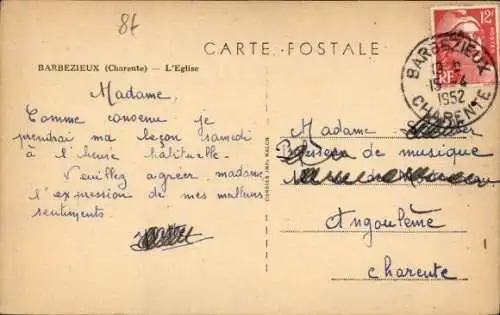 84
CARTE · POSTALE
BARBEZIEUX (Charente) — L'Eglise
12F
RF
BARBEZIEUX
15 - 4
1952
CHARENTE
Madame,
Comme convenu je
prendrai ma leçon samedi
à l'heure habituelle.
Veuillez agréer madame
l'expression de mes meilleurs
sentiments.
Madame
de musique
Angoulême
Charente